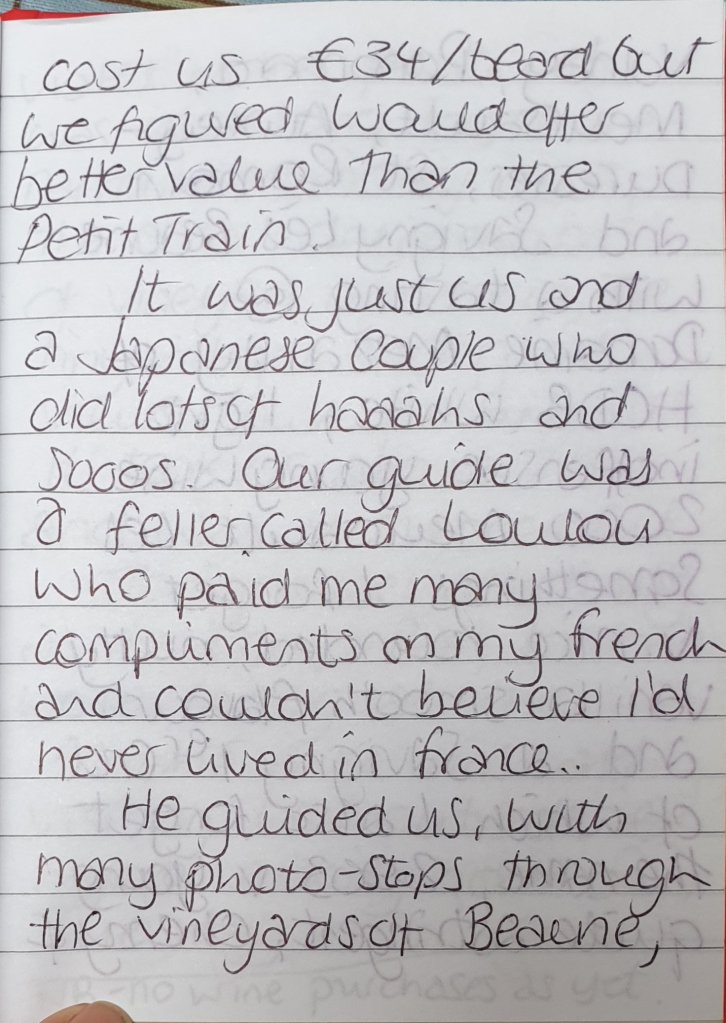 cost us €34/head but
we figured would offer
better value than the
Petit Train.
It was just us and
a Japanese couple who
did lots of haaahs and
sooos. Our guide was
a feller called Loulou
who paid me many
compliments on my french
and couldn't believe I'd
never lived in france..
He guided us, with
many photo-stops through
the vineyards of Beaune,